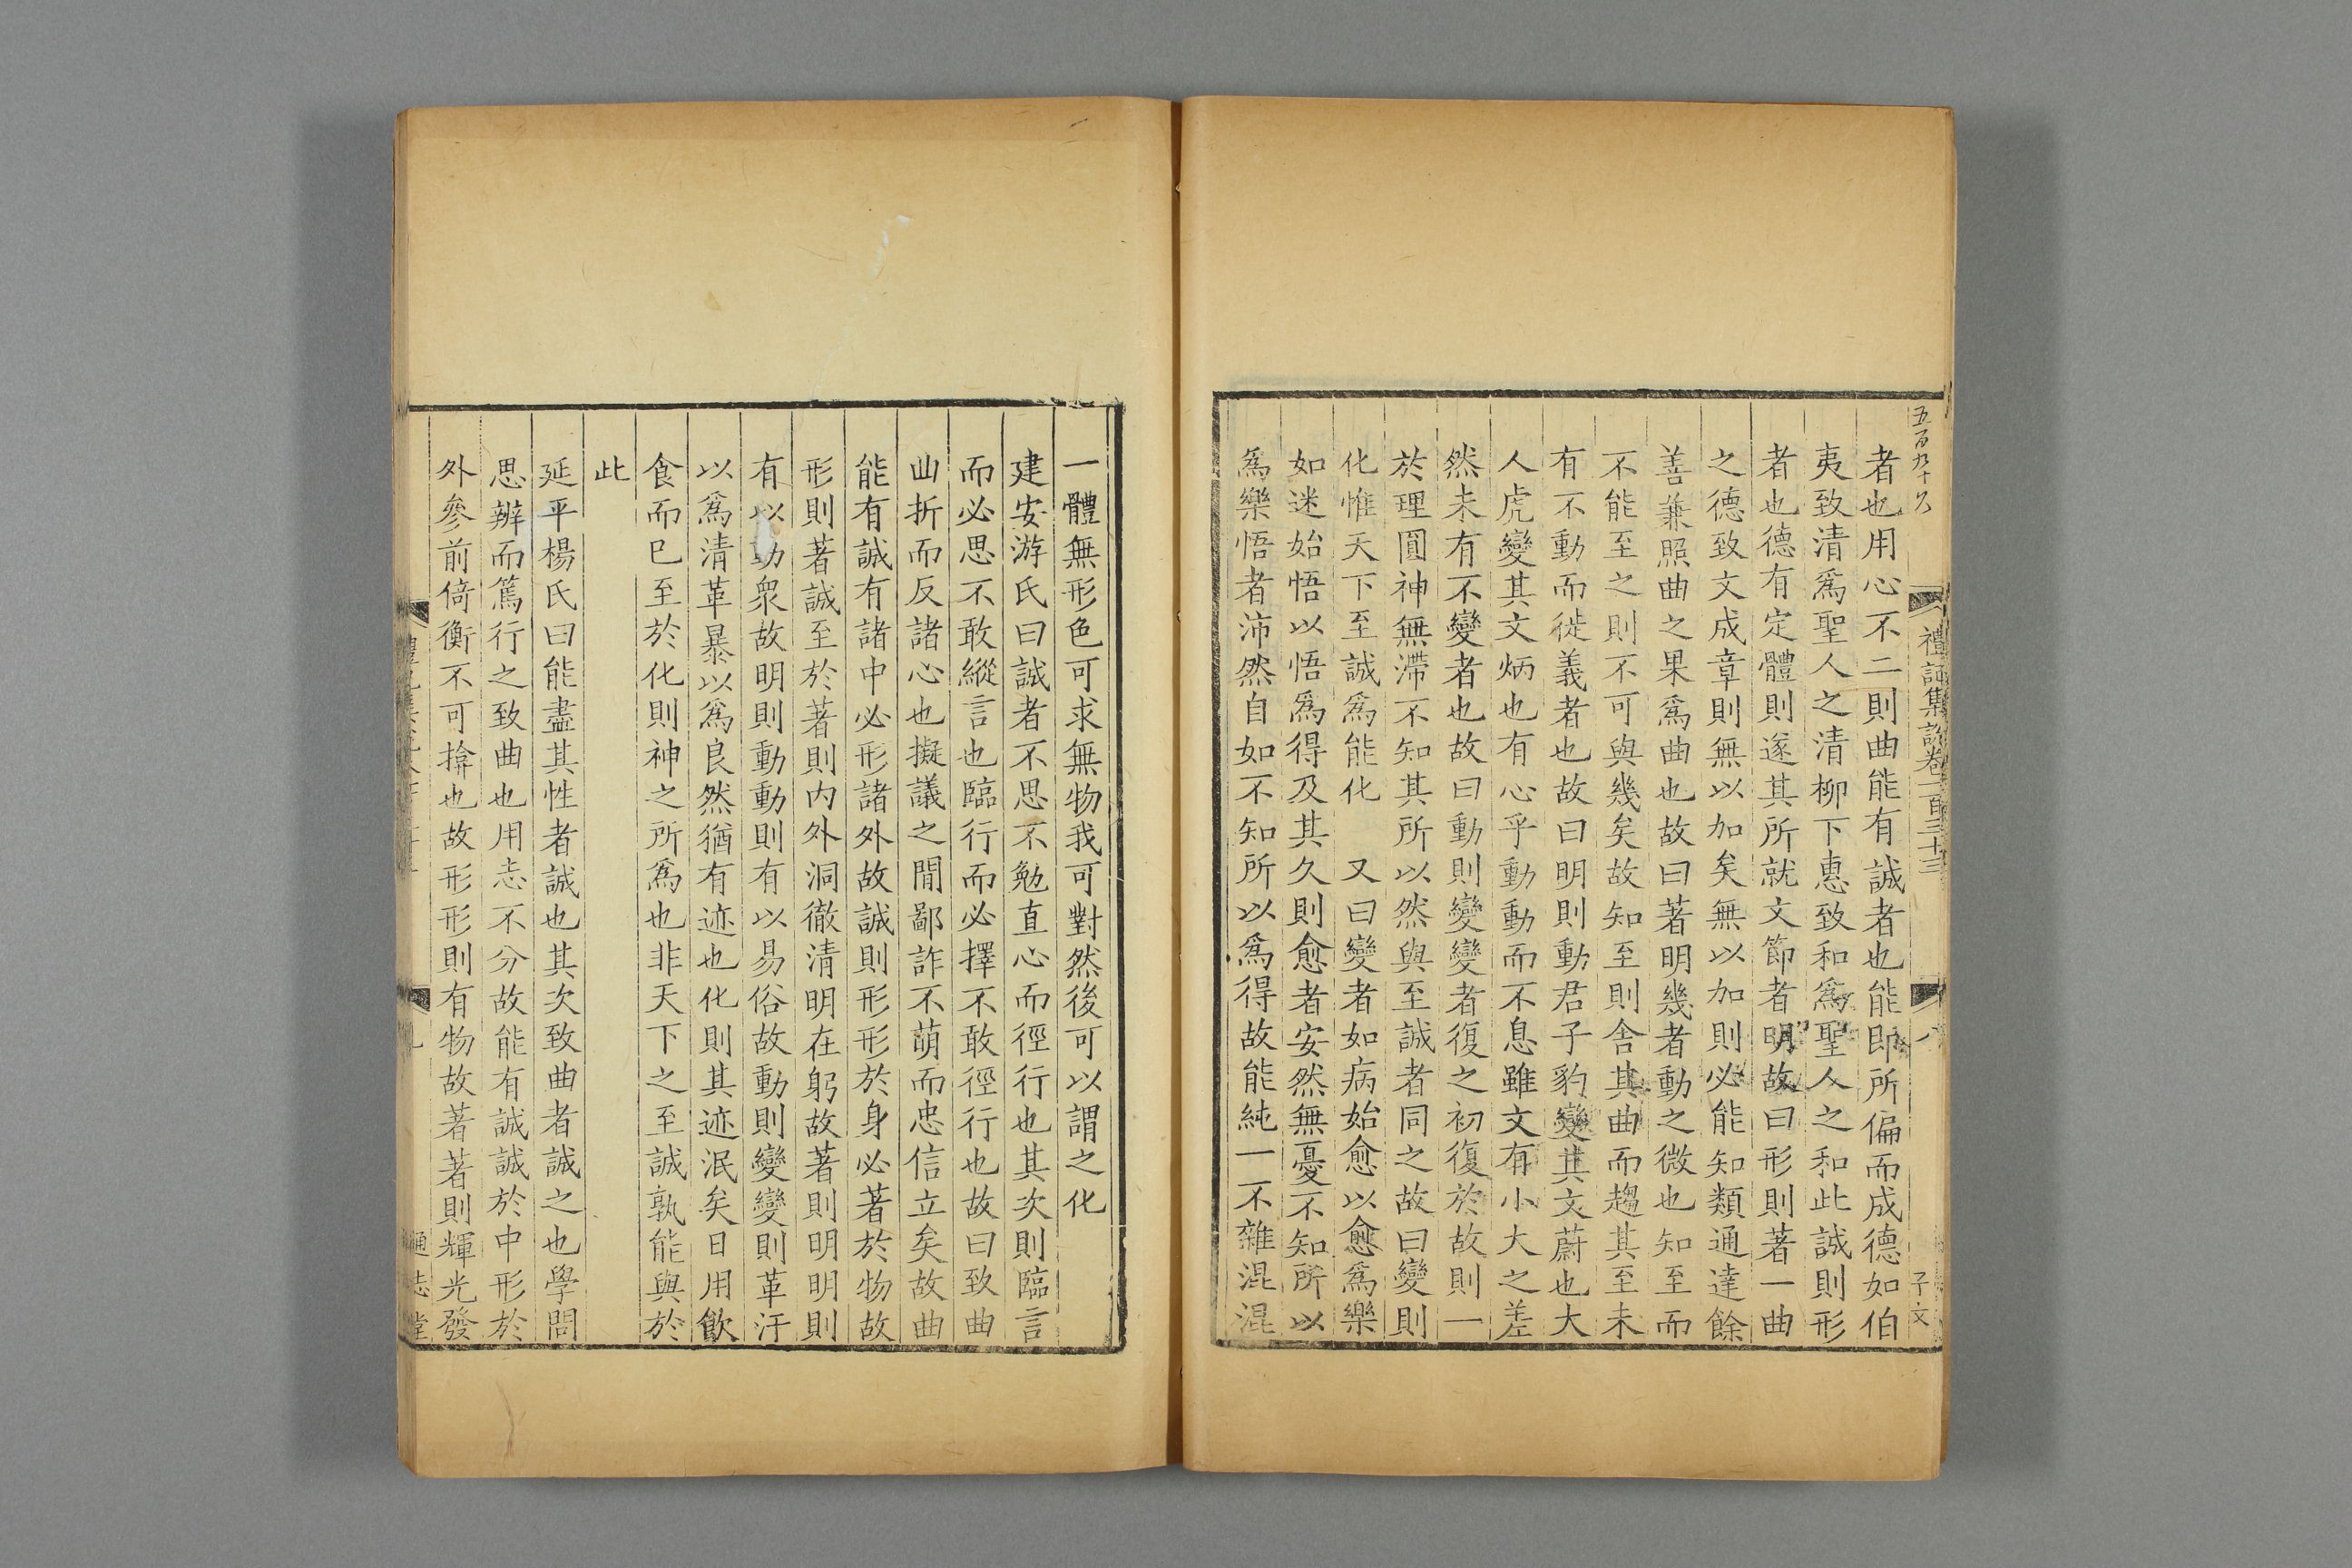 五百九十八
禮記集說卷一百三十三
八
子文
者也用心不二則曲能有誠者也能即所偏而成德如伯
夷致清爲聖人之清柳下惠致和爲聖人之和此誠則形
者也德有定體則遂其所就文節者明故曰形則著一曲
之德致文成章則無以加矣無以加則必能知類通達餘
善兼照曲之果爲曲也故曰著明幾者動之微也知至而
不能至之則不可與幾矣故知至則舍其曲而趨其至未
有不動而徙義者也故曰明則動君子豹變其文蔚也大
人虎變其文炳也有心乎動動而不息雖文有小大之差
然未有不變者也故曰動則變變者復之初復於故則一
於理圓神無滯不知其所以然與至誠者同之故曰變則
化惟天下至誠爲能化　又曰變者如病始愈以愈爲樂
如迷始悟以悟爲得及其久則愈者安然無憂不知所以
爲樂悟者沛然自如不知所以爲得故能純一不雜混混
一體無形色可求無物我可對然後可以謂之化
建安游氏曰誠者不思不勉直心而徑行也其次則臨言
而必思不敢縱言也臨行而必擇不敢徑行也故曰致曲
曲折而反諸心也擬議之間鄙詐不萌而忠信立矣故曲
能有誠有諸中必形諸外故誠則形形於身必著於物故
形則著誠至於著則内外洞徹清明在躬故著則明明則
有以動衆故明則動動則有以易俗故動則變變則革汙
以爲清革暴以爲良然猶有迹也化則其迹泯矣日用飲
食而已至於化則神之所爲也非天下之至誠孰能與於
此
延平楊氏曰能盡其性者誠也其次致曲者誠之也學問
思辨而篤行之致曲也用志不分故能有誠誠於中形於
外參前倚衡不可揜也故形形則有物故著著則輝光發
九
通志堂